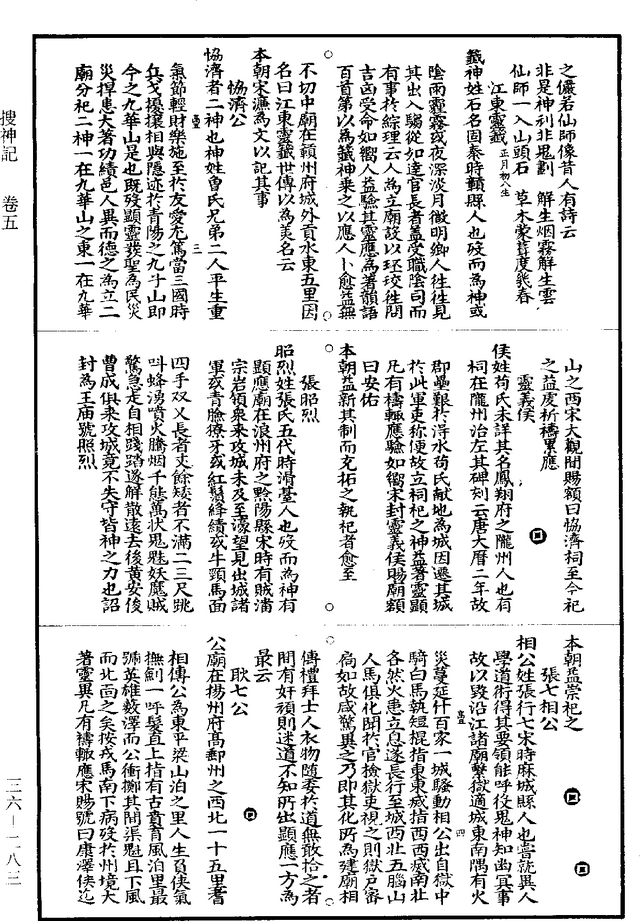 之儼若仙師像昔人有詩云
非是神刓非鬼劃 解生烟霧解生雲
仙師一入山頭石 草木蒙茸度幾春
江東靈籤 正月初八生
籤神姓石名固秦時贛縣人也歿而為神或
陰雨霾霧或夜深淡月微明鄉人往往見
其出入騶從如達官長者蓋受職陰司而
有事於綜理云人為立廟設以珓往問
吉凶受命如嚮人益驗其靈應為著韻語
百首第以為籤神乘之以應人卜愈益無
不切中廟在贛州府城外貢水東五里因
名曰江東靈籤世傳以為美名云
本朝宋濂為文以記其事
協濟公
協濟者二神也神姓魯氏兄弟二人平生重
氣節輕財樂施至於友愛尤篤當三國時
兵戈擾攘相與隱迹於青陽之九子山即
今之九華山是也既歿顯靈發聖為民災
災捍患大著功績邑人異而德之為立二
廟分祀二神一在九華山之東一在九華
山之西宋大觀間賜額曰協濟祠至今祀
之益虔祈禱累應
靈義侯
侯姓苟氏未詳其名鳳翔府之隴州人也有
祠在隴州治左其碑刻云唐大曆二年故
郡壘艱於浮水苟氏献地為城因遷其城
於此軍吏称便故立祠祀之神益著靈顯
凡有禱輒應驗如嚮宋封靈義侯賜廟額
曰安佑
本朝益新其制而充拓之執祀者愈至
張昭烈
昭烈姓張氏五代時滑臺人也歿而為神有
顯應廟在浪州府之黔陽縣宋時有賊潰
宗岩領衆来攻城未及至濠望見出城諸
軍或青臉獠牙或紅鬚絳績或牛頸馬面
四手双乂長者丈餘矮者不滿二三尺跳
叫蜂湧噴火騰烟千態萬状鬼魅妖魔賊
驚急走自相踐踏遂解散遠去後黄安後
曹成俱来攻城竟不失守皆神之力也詔
封為王庙號昭烈
本朝益崇祀之
張七相公
相公姓張行七宋時麻城縣人也嘗就異人
學道術得其要領能呼役鬼神知幽冥事
故以毀沿江諸廟繫獄適城東南隅有火
災蔓延仟百家一城騷動相公出自獄中
騎白馬執短棍指東東滅指西西滅南北
各然火患立息遂長行至城西北五腦山
人馬俱化閉於官檢獄吏視之則獄戶扃
扃如故咸驚異之乃即其化所為建廟相
傳禮拜士人衣物随委於道無敢拾之者
間有奸頑則迷道不知所出顯應一方為
最云
耿七公
公廟在揚州府高郵州之西北一十五里耆
相傳公為東平梁山泊之里人生負侠氣
撫劍一呼髮直上指有古賁育風泊里最
號英雄藪澤而公衝擲其間渠魁且下風
而北面之矣按戎馬南下病歿於州境大
著靈異凡有禱輒應宋賜號曰康澤侯迄
搜神記 卷五
三六—二八三